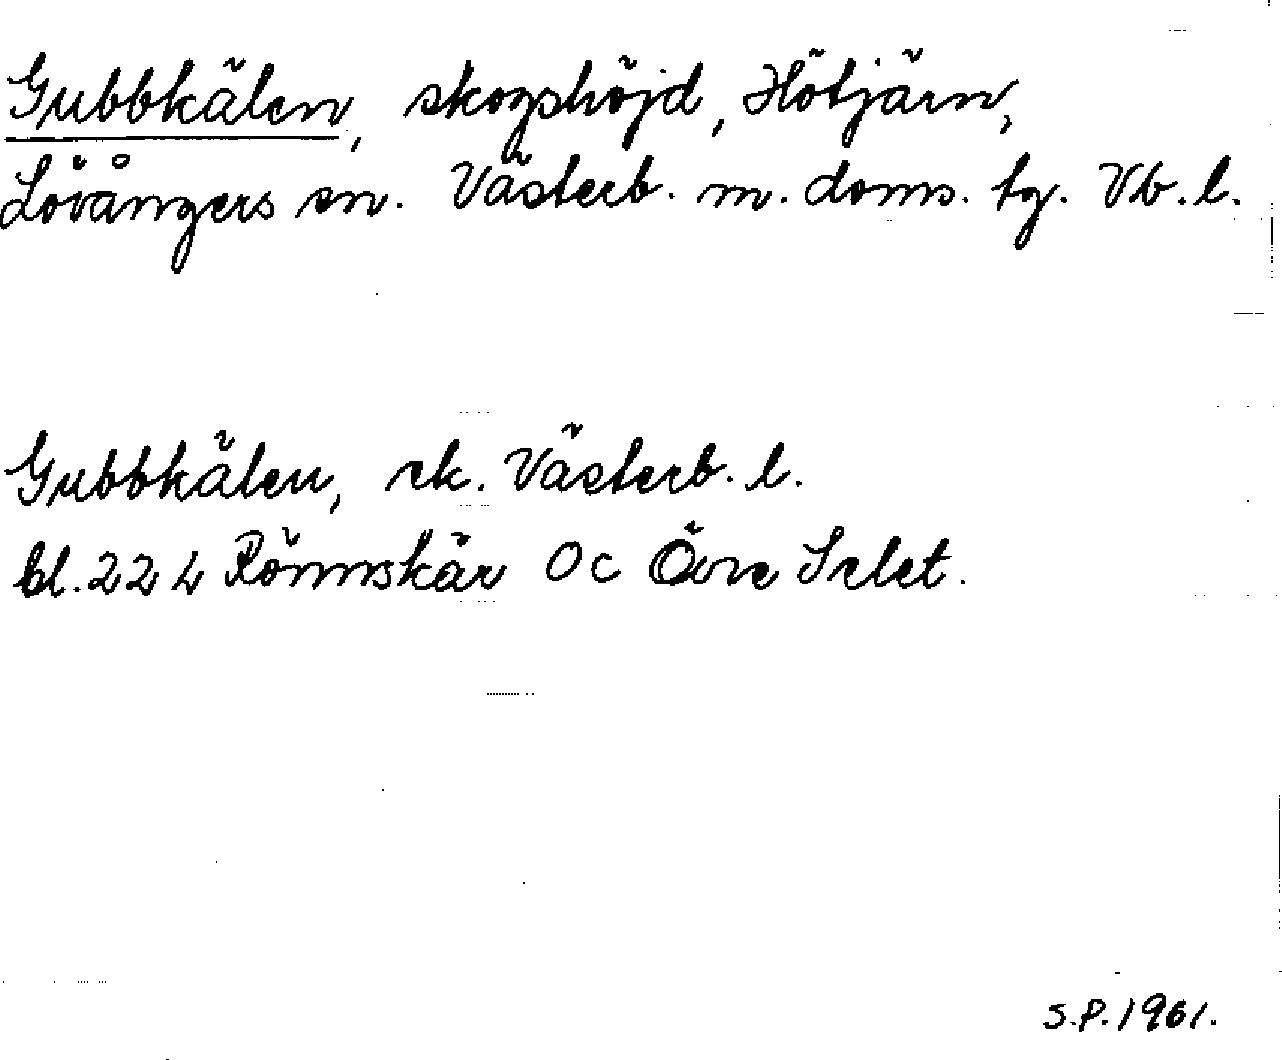 Gubbkälen, skogshöjd, Hötjärn,
Lövångers sn. Västerb. m. doms. tg. Vb. l.
Gubbkälen, ek. Västerb. l.
bl. 22 L Rönnskär Oc Övre Selet.
S.P. 1961.